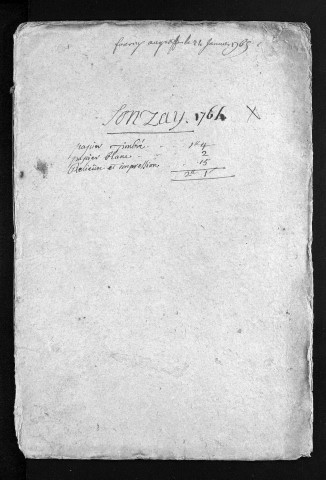 au greffe le 24 Janvier 1765
Sonzay. 1764 X
papier timbré . . 1# 4
papier blanc . . 2
Relieure et impression 15
2# 1s